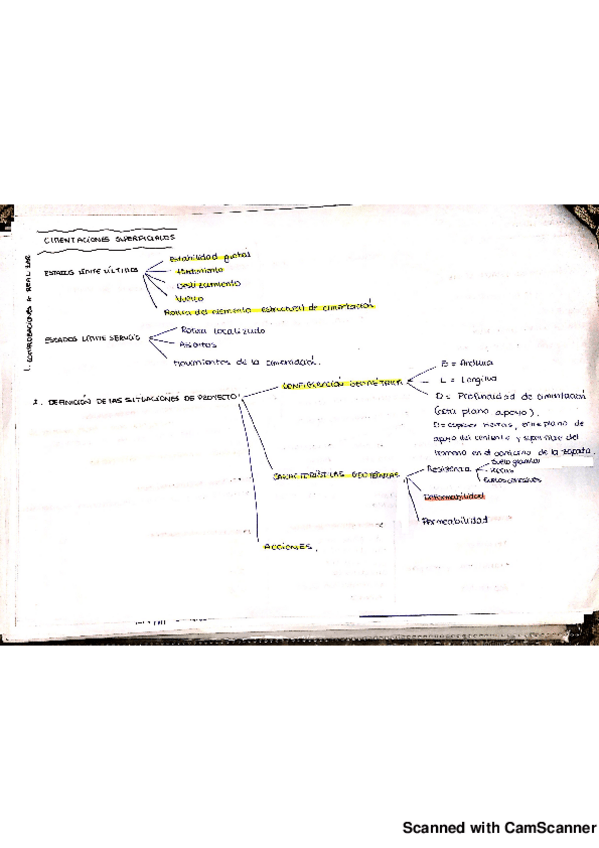 CIMENTACIONES SUPERFICIALES
1. COMPROBACIONES A REALIZAR
ESTADOS LÍMITE ÚLTIMOS
Estabilidad global
Hundimiento
Deslizamiento
Vuelco
Rotura del elemento estructural de cimentación
ESTADOS LÍMITE SERVICIO
Rotura localizada
Asientos
Movimientos de la cimentación.
2. DEFINICIÓN DE LAS SITUACIONES DE PROYECTO
CONFIGURACIÓN GEOMÉTRICA
B = Anchura
L = Longitud
D = Profundidad de cimentación
(cota plano apoyo).
D = espesor tierras, entre plano de
apoyo del cimiento y superficie del
terreno en el contorno de la zapata.
CARACTERÍSTICAS GEOTÉCNICAS
Resistencia
Suelo granular
Rocas
Suelos cohesivos
Deformabilidad
Permeabilidad
ACCIONES.
Scanned with CamScanner